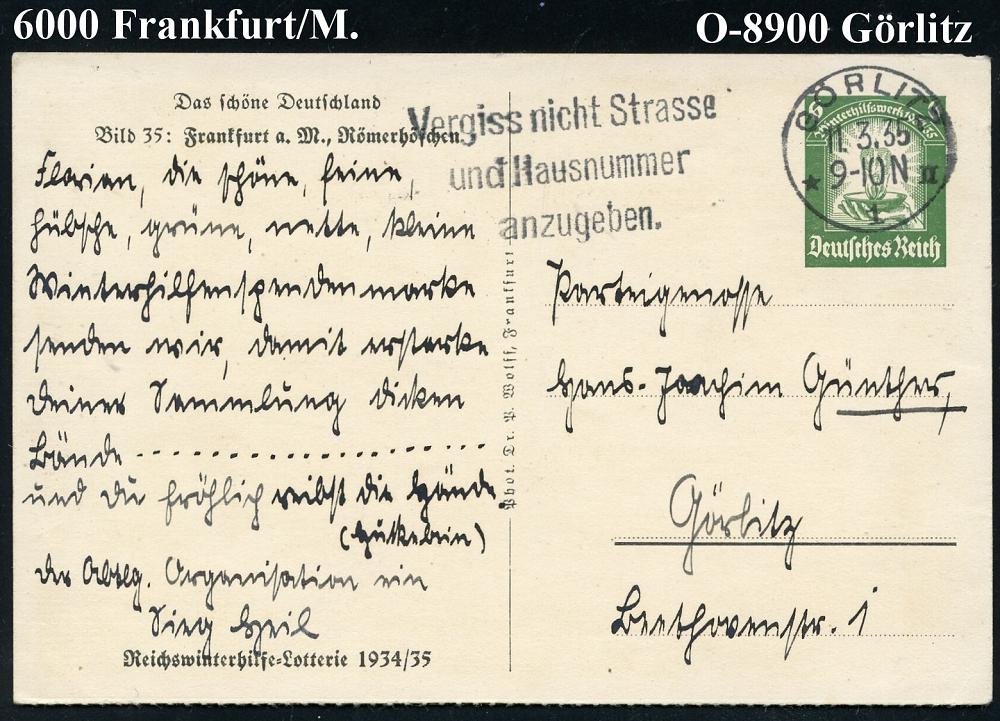 6000 Frankfurt/M.
O-8900 Görlitz
Das schöne Deutschland
Bild 35: Frankfurt a. M., Römerhöfchen.
Florian, die schöne, feine,
hübsche, grüne, nette, kleine
Winterhilfenspendenmarke
senden wir, damit erstarke
Deiner Sammlung dicken
Bände
und du fröhlich reibst die Hände
(Gutkelein)
der Abtlg. Organisation ein
Sieg Heil
Reichswinterhilfe-Lotterie 1934/35
Phot. Dr. P. Wolff, Frankfurt
Vergiss nicht Strasse
und Hausnummer
anzugeben.
GÖRLITZ
11.3.35
9-10 N
★ 1 II
Winterhilfswerk
Deutsches Reich
Parteigenosse
Hans-Joachim Günther,
Görlitz
Beethovenstr. 1